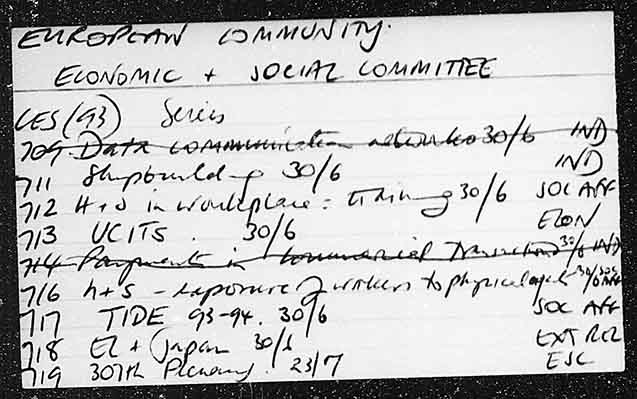 EUROPEAN COMMUNITY.
ECONOMIC + SOCIAL COMMITTEE
CES (93) Series
709 Data communication networks 30/6 IND
711 Shipbuilding 30/6 IND
712 H+S in workplace: training 30/6 SOC AFF
713 UCITS. 30/6 ECON
714 Payments in commercial transactions 30/6 IND
716 h+s - exposure of workers to physical agents 30/6 SOC AFF
717 TIDE 93-94. 30/6 SOC AFF
718 EC + Japan 30/6 EXT REL
719 307th Plenary. 23/7 ESC